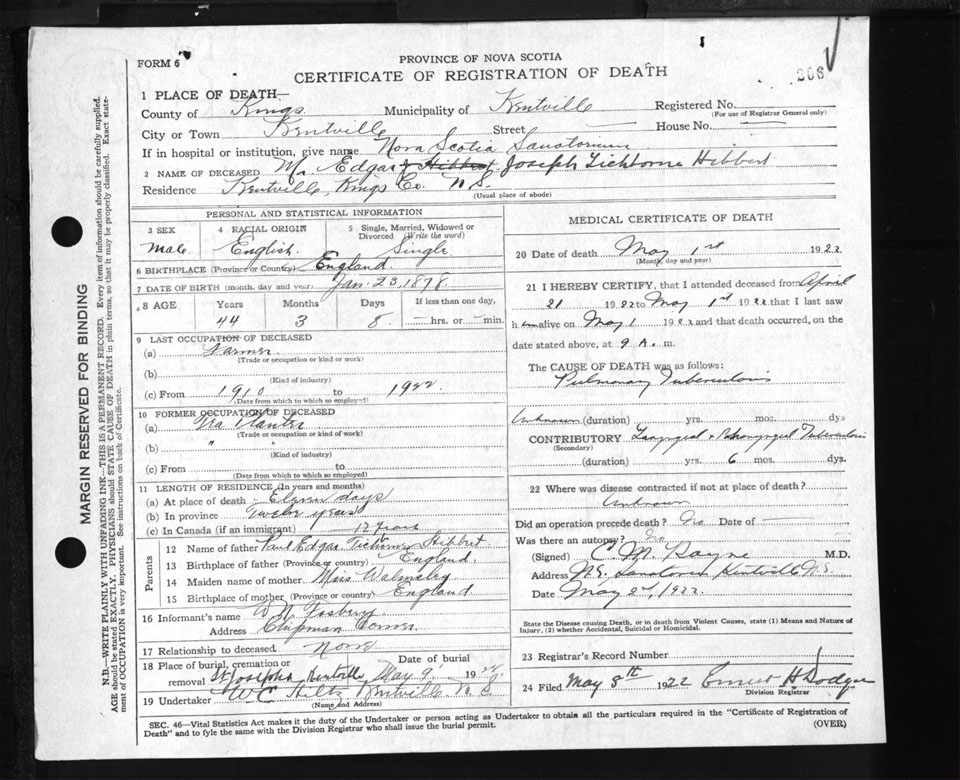 FORM 6
PROVINCE OF NOVA SCOTIA
CERTIFICATE OF REGISTRATION OF DEATH
206
1 PLACE OF DEATH—
County of Kings Municipality of Kentville Registered No.
(For use of Registrar General only)
City or Town Kentville Street — House No. —
If in hospital or institution, give name Nova Scotia Sanatorium
2 NAME OF DECEASED Mr Edgar Hibbert Joseph Tichborne Hibbert
Residence Kentville, Kings Co. N.S.
(Usual place of abode)
PERSONAL AND STATISTICAL INFORMATION
3 SEX 4 RACIAL ORIGIN 5 Single, Married, Widowed or Divorced (Write the word)
Male English Single
6 BIRTHPLACE (Province or Country) England
7 DATE OF BIRTH (month, day and year) Jan. 23, 1878
8 AGE Years Months Days If less than one day,
44 3 8 — hrs. or — min.
9 LAST OCCUPATION OF DECEASED
(a) Farmer
(Trade or occupation or kind or work)
(b)
(Kind of industry)
(c) From 1910 to 1922
(Date from which to which so employed)
10 FORMER OCCUPATION OF DECEASED
(a) Tea Planter
(Trade or occupation or kind of work)
(b) " "
(Kind of industry)
(c) From to
(Date from which to which so employed)
11 LENGTH OF RESIDENCE (In years and months)
(a) At place of death Eleven days
(b) In province Twelve years
(c) In Canada (if an immigrant) 12 years
Parents
12 Name of father Paul Edgar Tichborne Hibbert
13 Birthplace of father (Province or country) England.
14 Maiden name of mother Miss Walmsley
15 Birthplace of mother (Province or country) England
16 Informant's name W. N. Fosbery
Address Chipman Corner.
17 Relationship to deceased None
18 Place of burial, cremation or removal St Josephs Kentville Date of burial May 9, 1922
19 Undertaker W C Hiltz Kentville N.S
(Name and Address)
MEDICAL CERTIFICATE OF DEATH
20 Date of death May 1st 1922
(Month, day and year)
21 I HEREBY CERTIFY, that I attended deceased from April
21 1922 to May 1st 1922 that I last saw
him alive on May 1 1922 and that death occurred, on the
date stated above, at 9 A. m.
The CAUSE OF DEATH was as follows:
Pulmonary Tuberculosis
Unknown (duration) yrs. mos. dys
CONTRIBUTORY Laryngeal & Pharyngeal Tuberculosis
(Secondary)
(duration) yrs. 6 mos. dys.
22 Where was disease contracted if not at place of death?
Unknown
Did an operation precede death? No Date of —
Was there an autopsy? No
(Signed) C. M. Bayne M.D.
Address N.S. Sanatorium Kentville N.S.
Date May 2nd, 1922.
State the Disease causing Death, or in death from Violent Causes, state (1) Means and Nature of Injury, (2) whether Accidental, Suicidal or Homicidal.
23 Registrar's Record Number
24 Filed May 8th 1922 Ernest H. Dodge
Division Registrar
SEC. 46—Vital Statistics Act makes it the duty of the Undertaker or person acting as Undertaker to obtain all the particulars required in the "Certificate of Registration of Death" and to fyle the same with the Division Registrar who shall issue the burial permit.
(OVER)
MARGIN RESERVED FOR BINDING
N.B.—WRITE PLAINLY WITH UNFADING INK—THIS IS A PERMANENT RECORD. Every item of information should be carefully supplied.
AGE should be stated EXACTLY. PHYSICIANS should STATE CAUSE OF DEATH in plain terms, so that it may be properly classified. Exact statement of OCCUPATION is very important. See instructions on back of Certificate.